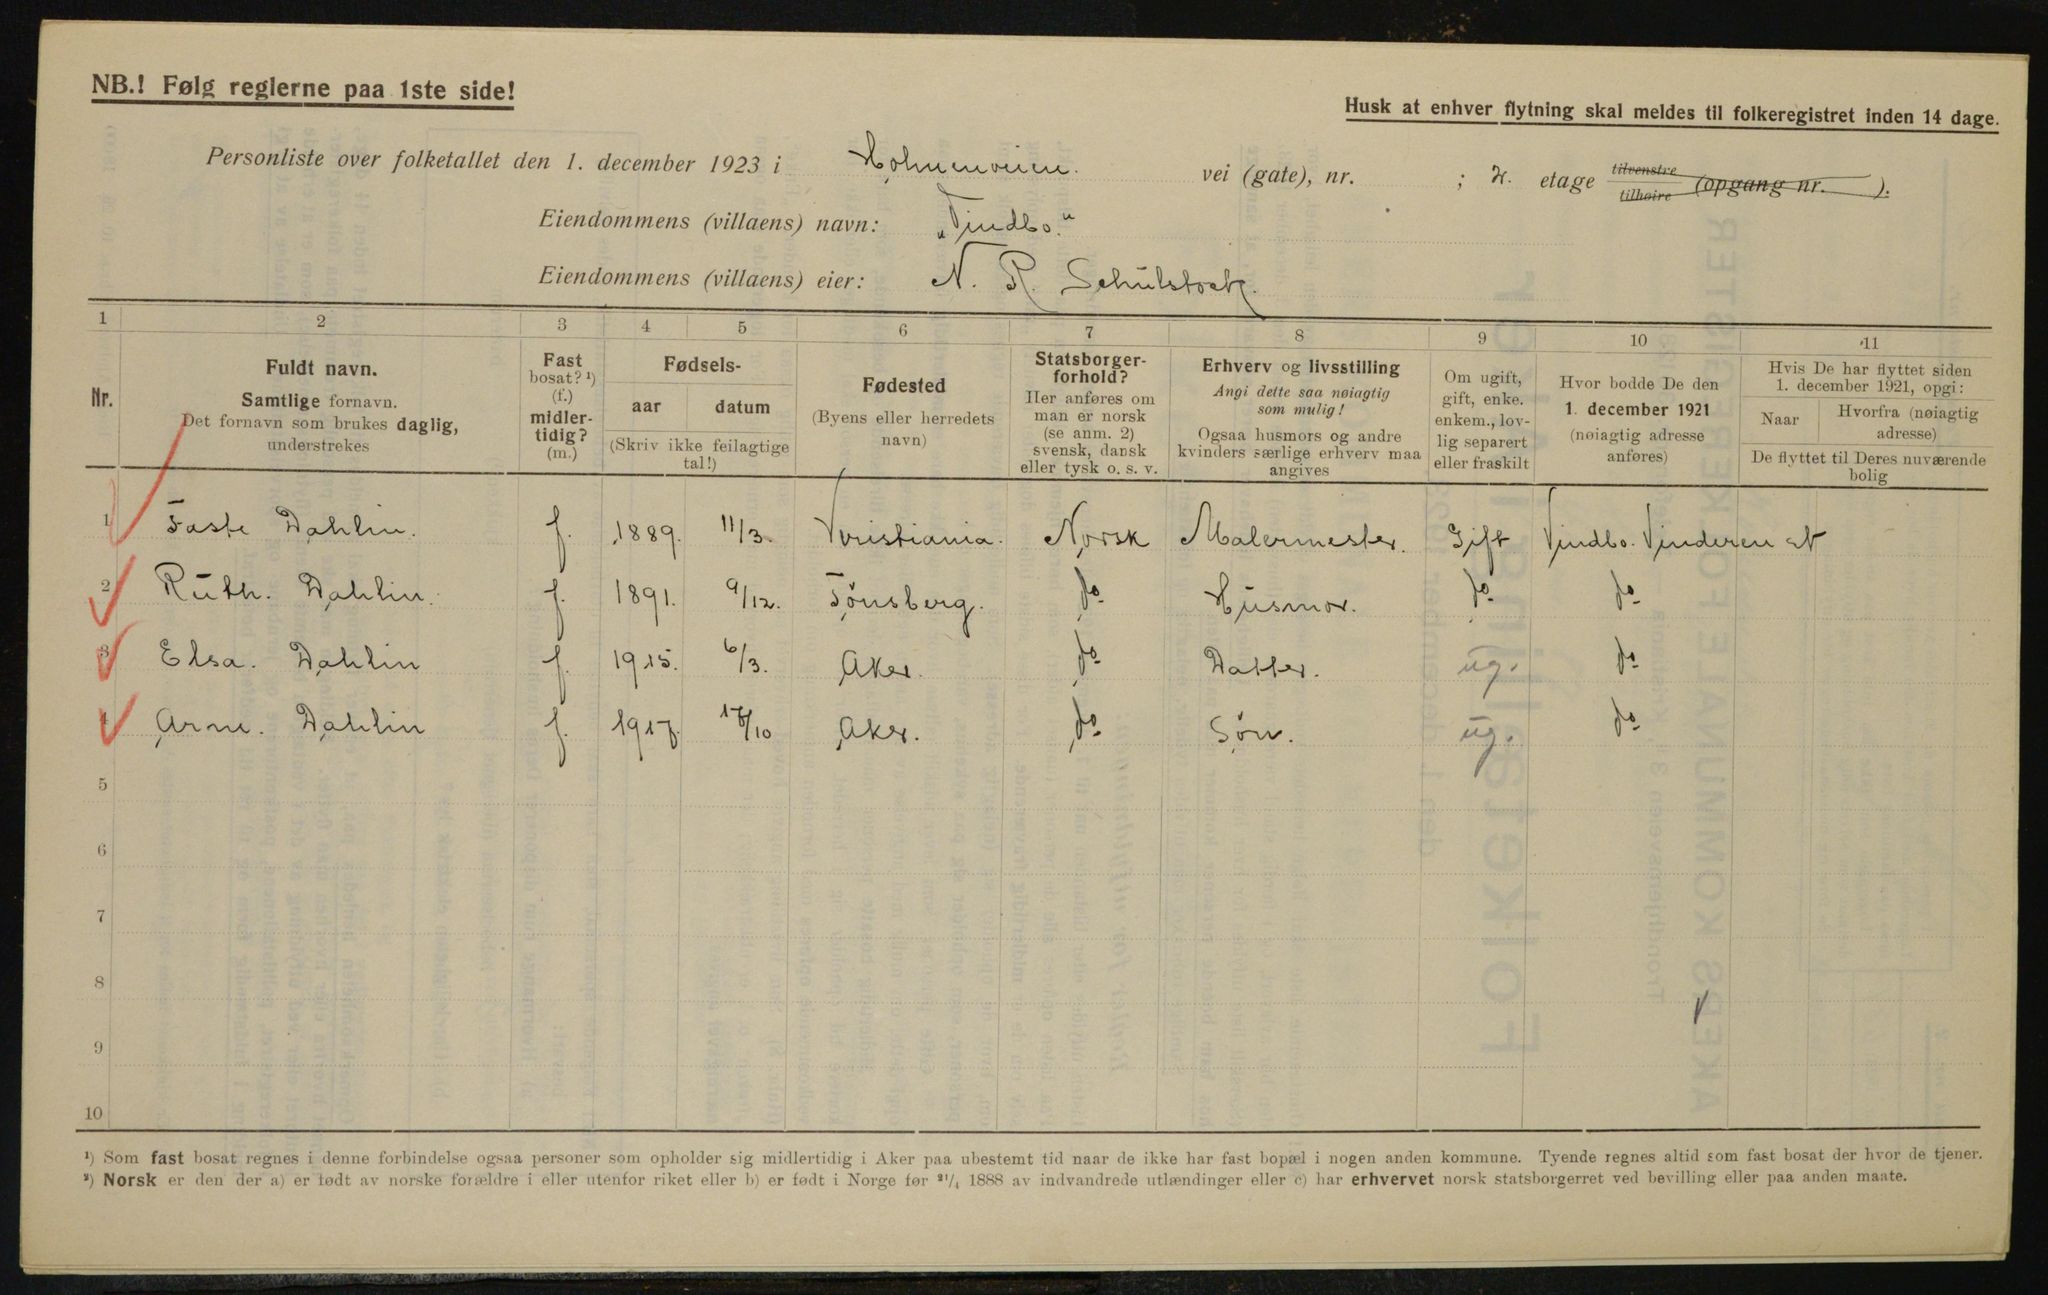 NB.! Følg reglerne paa 1ste side!
Husk at enhver flytning skal meldes til folkeregistret inden 14 dage.
Personliste over folketallet den 1. december 1923 i Holmenveien. vei (gate), nr. ; 2. etage tilvenstre tilhøire (opgang nr. ).
Eiendommens (villaens) navn: „Vindbo."
Eiendommens (villaens) eier: N. R. Schulstock.
1 2 3 4 5 6 7 8 9 10 11
Nr.
Fuldt navn.
Samtlige fornavn.
Det fornavn som brukes daglig,
understrekes
Fast
bosat? ¹)
(f.)
midler-
tidig?
(m.)
Fødsels-
aar datum
(Skriv ikke feilagtige
tal!)
Fødested
(Byens eller herredets
navn)
Statsborger-
forhold?
Her anføres om
man er norsk
(se anm. 2)
svensk, dansk
eller tysk o. s. v.
Erhverv og livsstilling
Angi dette saa nøiagtig
som mulig!
Ogsaa husmors og andre
kvinders særlige erhverv maa
angives
Om ugift,
gift, enke.
enkem., lov-
lig separert
eller fraskilt
Hvor bodde De den
1. december 1921
(nøiagtig adresse
anføres)
Hvis De har flyttet siden
1. december 1921, opgi:
Naar
Hvorfra (nøiagtig
adresse)
De flyttet til Deres nuværende
bolig
1 Faste Dahlin. f. 1889. 11/3. Kristiania. Norsk Malermester. Gift Vindbo. Vinderen st
2 Ruth. Dahlin. f. 1891. 9/12. Tønsberg. do Husmor. do do
3 Elsa. Dahlin f. 1915. 6/3. Aker. do Datter. ug. do
4 Arne. Dahlin f. 1917. /10 Aker. do Søn. ug. do
5
6
7
8
9
10
¹) Som fast bosat regnes i denne forbindelse ogsaa personer som opholder sig midlertidig i Aker paa ubestemt tid naar de ikke har fast bopæl i nogen anden kommune. Tyende regnes altid som fast bosat der hvor de tjener.
²) Norsk er den der a) er født av norske forældre i eller utenfor riket eller b) er født i Norge før ²¹/₄ 1888 av indvandrede utlændinger eller c) har erhvervet norsk statsborgerret ved bevilling eller paa anden maate.